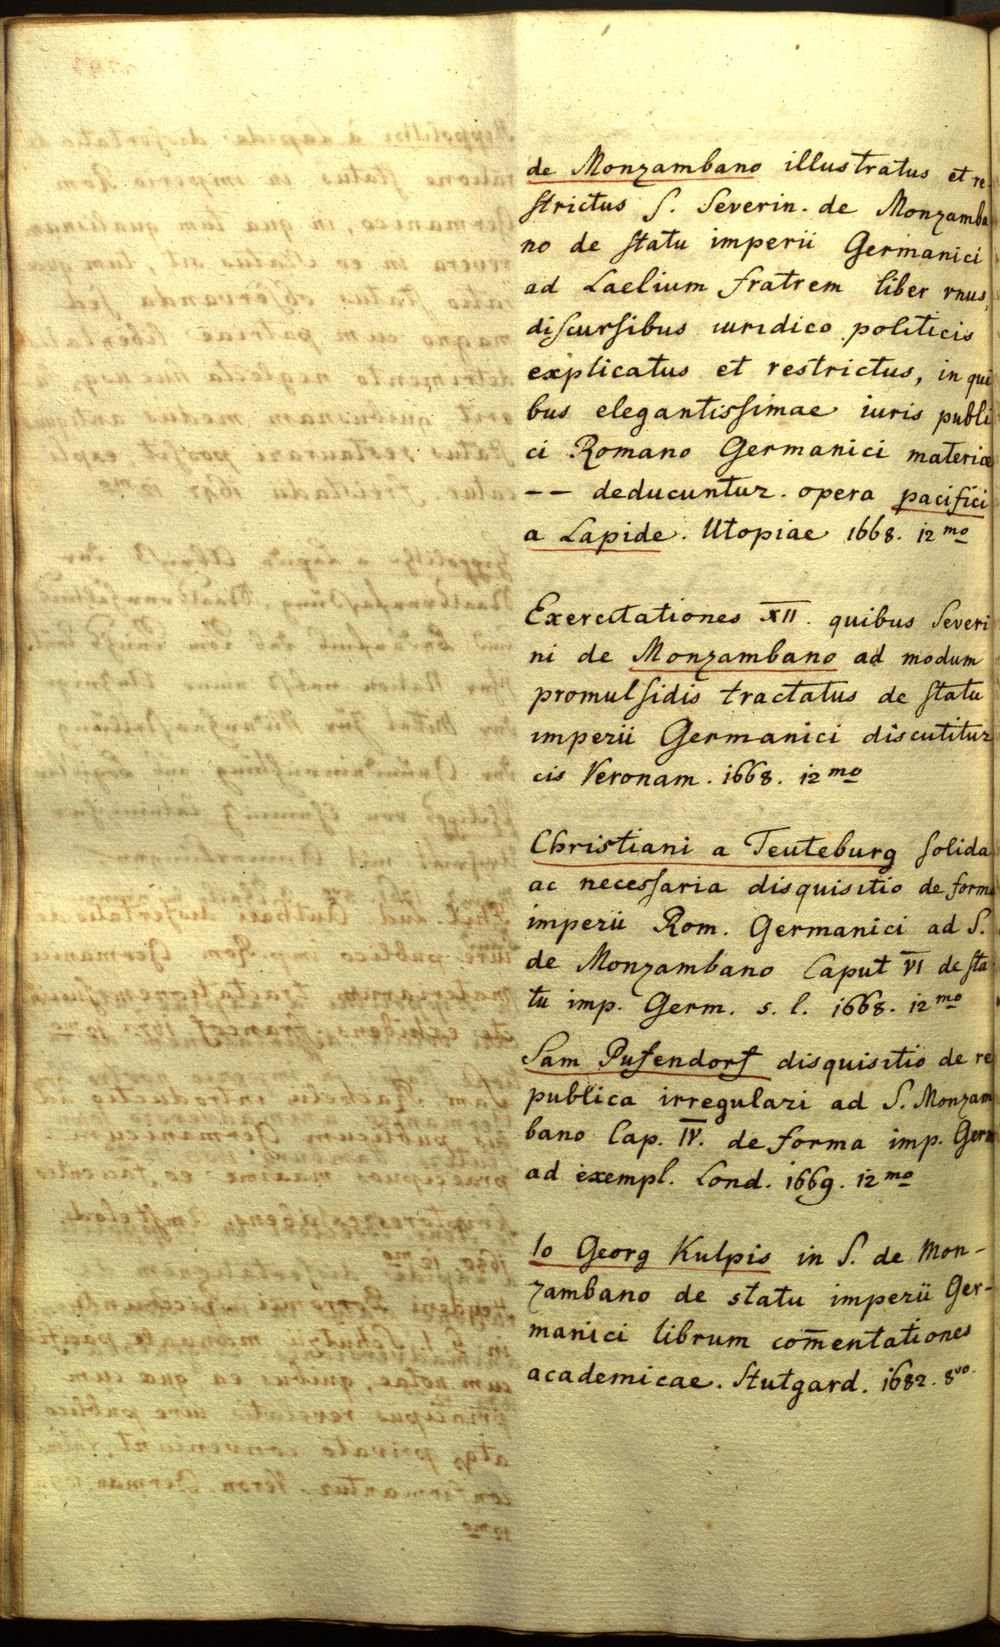 de Monzambano illustratus et re
strictus s. Severin. de Monzamba
no de statu imperii Germanici
ad Laelium fratrem liber vnus,
discursibus iuridico politicis
explicatus et restrictus, in qui
bus elegantissimae iuris publi
ci Romano Germanici materiae
-- deducuntur. opera pacifici
a Lapide. Utopiae 1668. 12mo
Exercitationes XII. quibus Severi
ni de Monzambano ad modum
promulsidis tractatus de statu
imperii Germanici discutitur
cis Veronam. 1668. 12mo
Christiani a Teuteburg solida
ac necessaria disquisitio de forma
imperii Rom. Germanici ad S.
de Monzambano Caput VI de sta
tu imp. Germ. s. l. 1668. 12mo
Sam Pufendorf disquisitio de re
publica irregulari ad S. Monzam
bano Cap. IV. de forma imp. Germ
ad exempl. Lond. 1669. 12mo
Io Georg Kulpis in S. de Mon-
zambano de statu imperii Ger-
manici librum com̄entationes
academicae. Stutgard. 1682. 8vo.